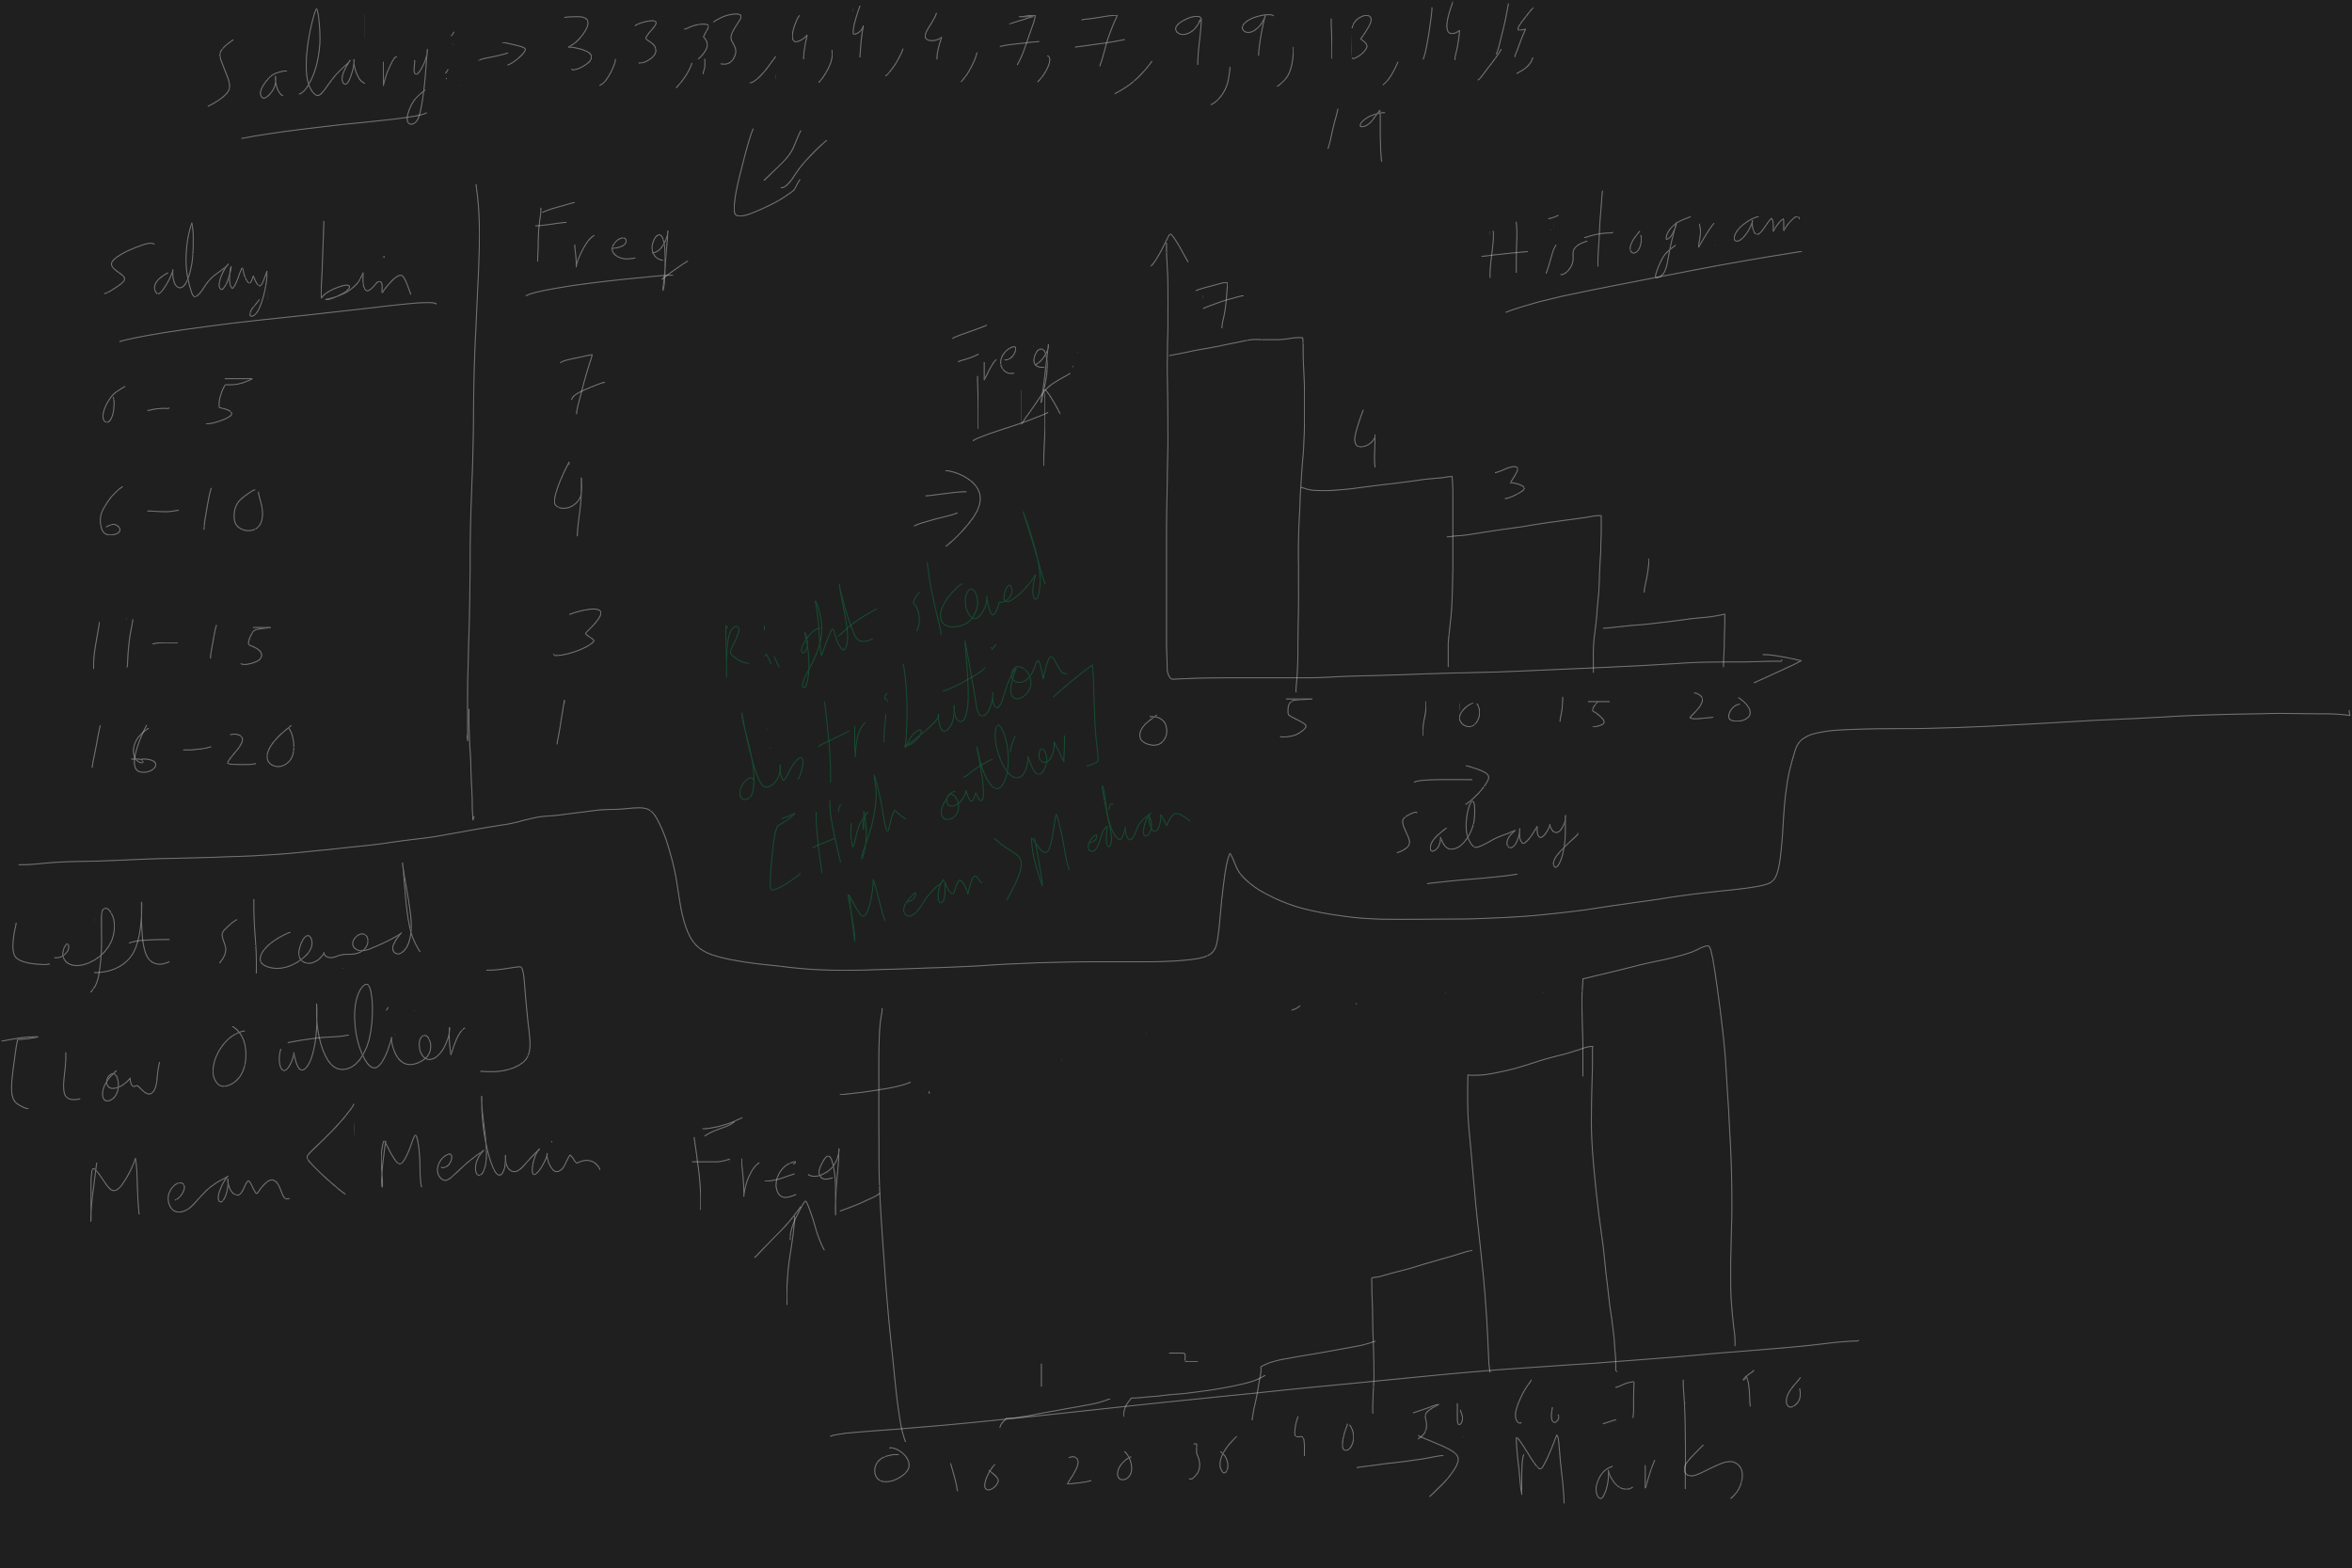 Salary: => 3, 3, 3, 3, 4, 4, 4, 7, 7, 9, 9, 13, 14, 15,
19
Salary bin Freq
0 - 5 7
6 - 10 4
11 - 15 3
16 - 20 1
Histogram
Freq
7
4
3
1
0 5 10 15 20
Salary
Right skewed
distribution
[High outlier]
Mean > Median
Left skewed
[Low Outlier]
Mean < Median
Freq
0 10 20 30 40 50 60 70
Marks